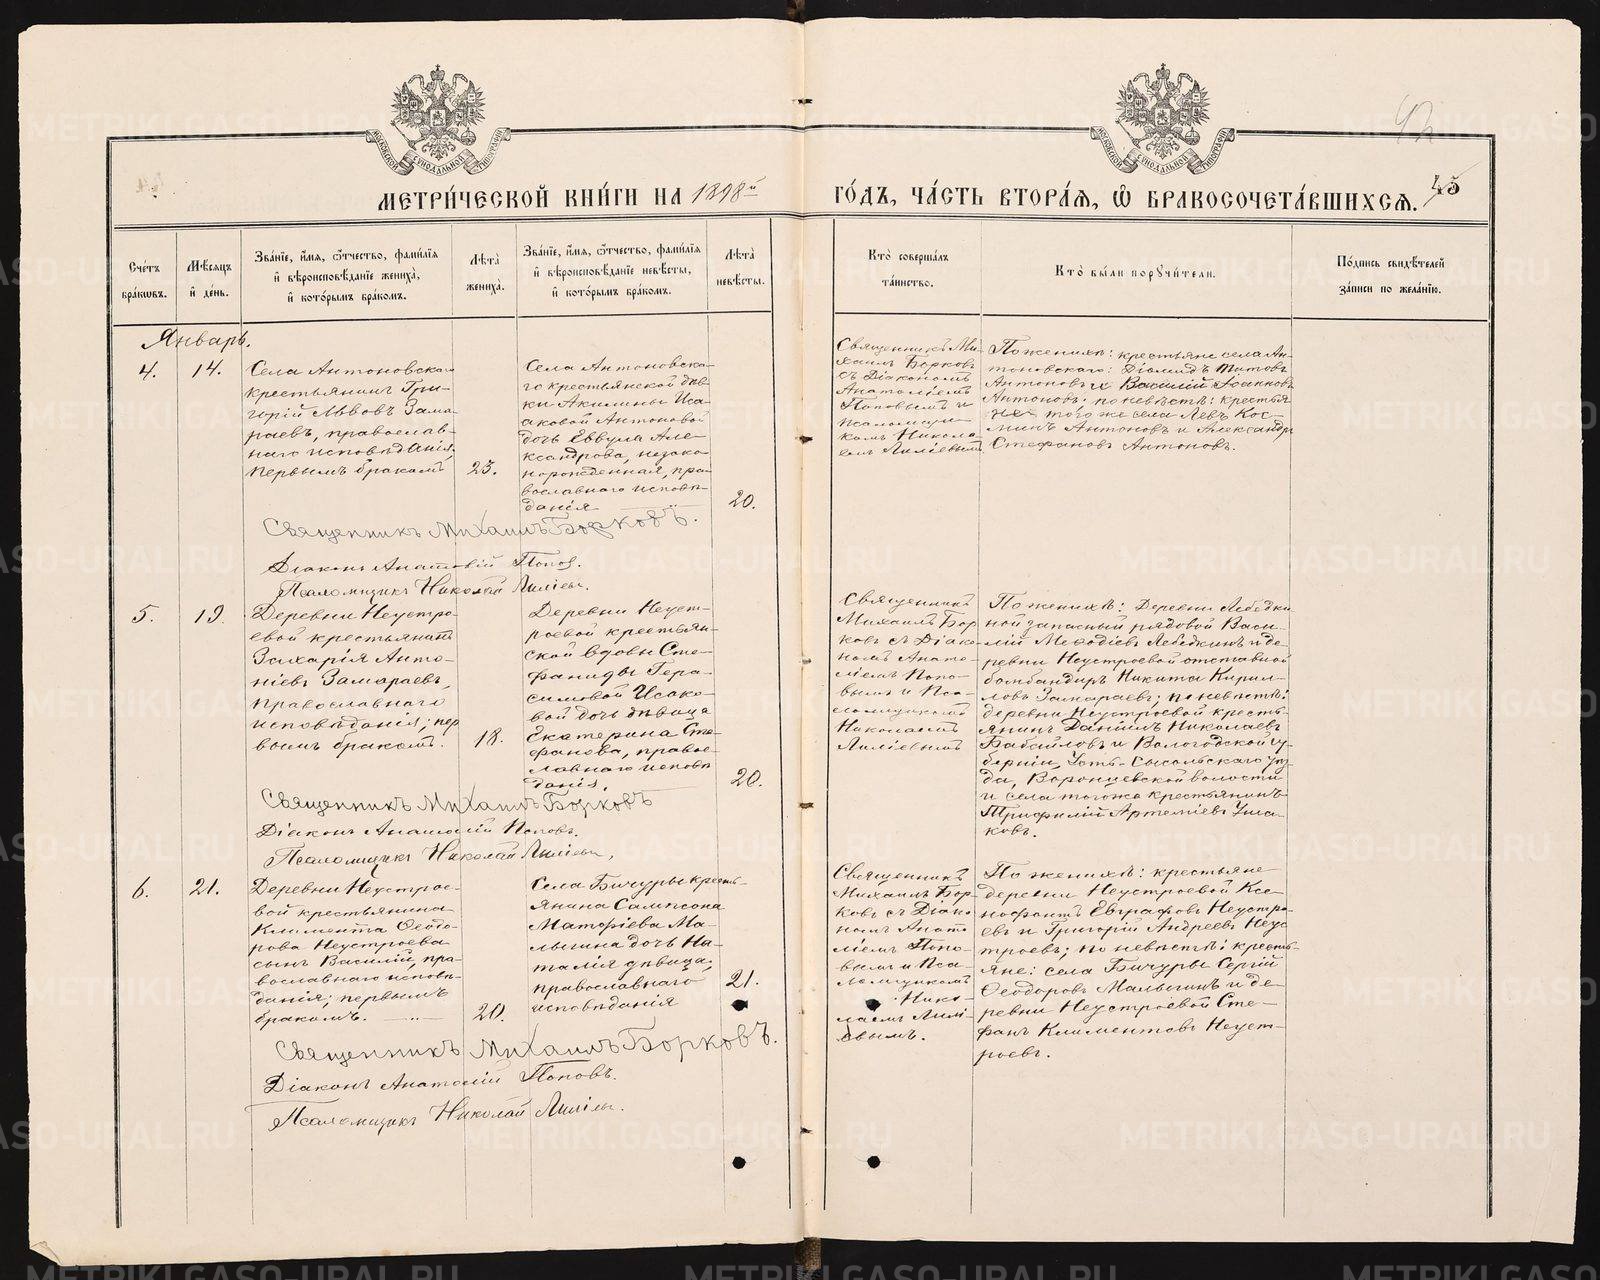 МОСКОВСКОЙ СѴНОДАЛЬНОЙ ТИПОГРАФІИ
МОСКОВСКОЙ СѴНОДАЛЬНОЙ ТИПОГРАФІИ
МЕТРИ́ЧЕСКОЙ КНИ́ГИ НА 1898й
ГО́ДЪ, ЧА́СТЬ ВТОРА́Я, Ѽ БРАКОСОЧЕТА́ВШИХСЯ.
45
Сче́тъ бра́кѡвъ.
Мѣ́сяцъ и́ де́нь.
Зва́нїе, и́мя, ѻ҆́тчество, фами́лїя и́ вѣроисповѣ́данїе жениха̀, и́ кото́рымъ бра́комъ.
Лѣ́та жениха̀.
Зва́нїе, и́мя, ѻ҆́тчество, фами́лїя и́ вѣроисповѣ́данїе невѣ́сты, и́ кото́рымъ бра́комъ.
Лѣ́та невѣ́сты.
Кто̀ соверша́лъ та́инство.
Кто̀ бы́ли порꙋчи́тели.
По́дпись свидѣ́телей за́писи по жела́нїю.
Январь.
4.
14.
Села Антоновскаго
крестьянинъ Гри-
горій Львовъ Зама-
раевъ, православ-
наго исповѣданія,
первымъ бракомъ
25.
Села Антоновска-
го крестьянской дѣв-
ки Акилины Иса-
аковой Антоновой
дочь Еввула Але-
ксандрова, незако-
норожденная, пра-
вославнаго исповѣ-
данія
20.
Священникъ Ми-
хаилъ Борковъ
съ Діакономъ
Анатоліемъ
Поповымъ и
псаломщи-
комъ Никола-
емъ Лиліевымъ
По женихѣ: крестьяне села Ан-
тоновскаго: Діомидъ Титовъ
Антоновъ и Василій Іоанновъ
Антоновъ; по невѣстѣ: крестья
не того же села Левъ Кос-
минъ Антоновъ и Александръ
Стефановъ Антоновъ.
Священникъ Михаилъ Борковъ.
Діаконъ Анатолій Попов.
Псаломщикъ Николай Лиліевъ.
5.
19.
Деревни Неустро-
евой крестьянинъ
Захарія Анто-
ніевъ Замараевъ,
православнаго
исповѣданія; пер
вымъ бракомъ.
18.
Деревни Неуст-
роевой крестьян-
ской вдовы Сте-
фаниды Гера-
симовой Исако-
вой дочь дѣвица
Екатерина Сте-
фанова, правос-
лавнаго исповѣ
данія.
20.
Священникъ
Михаилъ Бор
ковъ съ Діако-
номъ Анато-
ліемъ Попо-
вымъ и Пса-
ломщикомъ
Николаемъ
Лиліевымъ
По женихѣ: Деревни Лебедки
ной запасный рядовой Васи-
лій Меѳодіевъ Лебедкинъ и де-
ревни Неустроевой отставной
бомбандиръ Никита Кирил-
ловъ Замараевъ; по невѣстѣ:
деревни Неустроевой кресть-
янинъ Даніилъ Николаевъ
Бабайловъ и Вологодской гу-
берніи, Усть-Сысольскаго уѣз-
да, Воронцевской волости
и села тогоже крестьянинъ
Трифилій Артеміевъ Уша-
ковъ.
Священникъ Михаилъ Борковъ
Діаконъ Анатолій Поповъ.
Псаломщикъ Николай Лиліевъ,
6.
21.
Деревни Неустрое-
вой крестьянина
Климента Ѳеодо-
рова Неустроева
сынъ Василій, пра-
вославнаго исповѣ-
данія; первымъ
бракомъ.
20.
Села Бичуры кресть-
янина Сампсона
Матѳіева Ма-
лыгина дочь На-
талія дѣвица,
православнаго
исповѣданія
21.
Священникъ
Михаилъ Бор-
ковъ съ Діако
номъ Анато
ліемъ Попо-
вымъ и Пса-
ломщикомъ
Нико-
лаемъ Лилі-
евымъ.
По женихѣ: крестьяне
деревни Неустроевой Ксе-
нофонтъ Евграфовъ Неустро-
евъ и Григорій Андреевъ Неус
троевъ; по невѣстѣ: кресть-
яне: села Бичуры Сергій
Ѳеодоровъ Малыгинъ и де-
ревни Неустроевой Сте-
фанъ Климентовъ Неуст-
роевъ.
Священникъ Михаилъ Борковъ.
Діаконъ Анатолій Поповъ.
Псаломщикъ Николай Лиліевъ.
METRIKI.GASO-URAL.RU